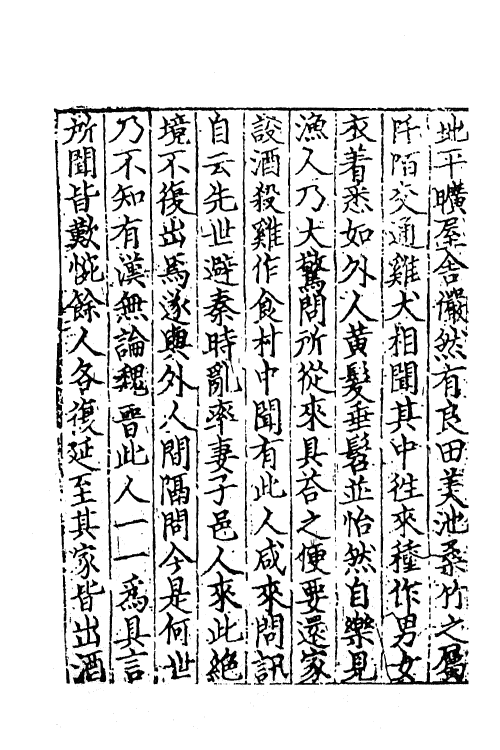 地平曠屋舍儼然有良田美池桑竹之屬
阡陌交通雞犬相聞其中徃來種作男女
衣着悉如外人黄髮垂髫並怡然自樂見
漁人乃大驚問所從來具荅之便要還家
設酒殺雞作食村中聞有此人咸來問訊
自云先世避秦時亂率妻子邑人來此絶
境不復出焉遂與外人間隔問今是何世
乃不知有漢無論魏晋此人一一爲具言
所聞皆歎惋餘人各復延至其家皆出酒